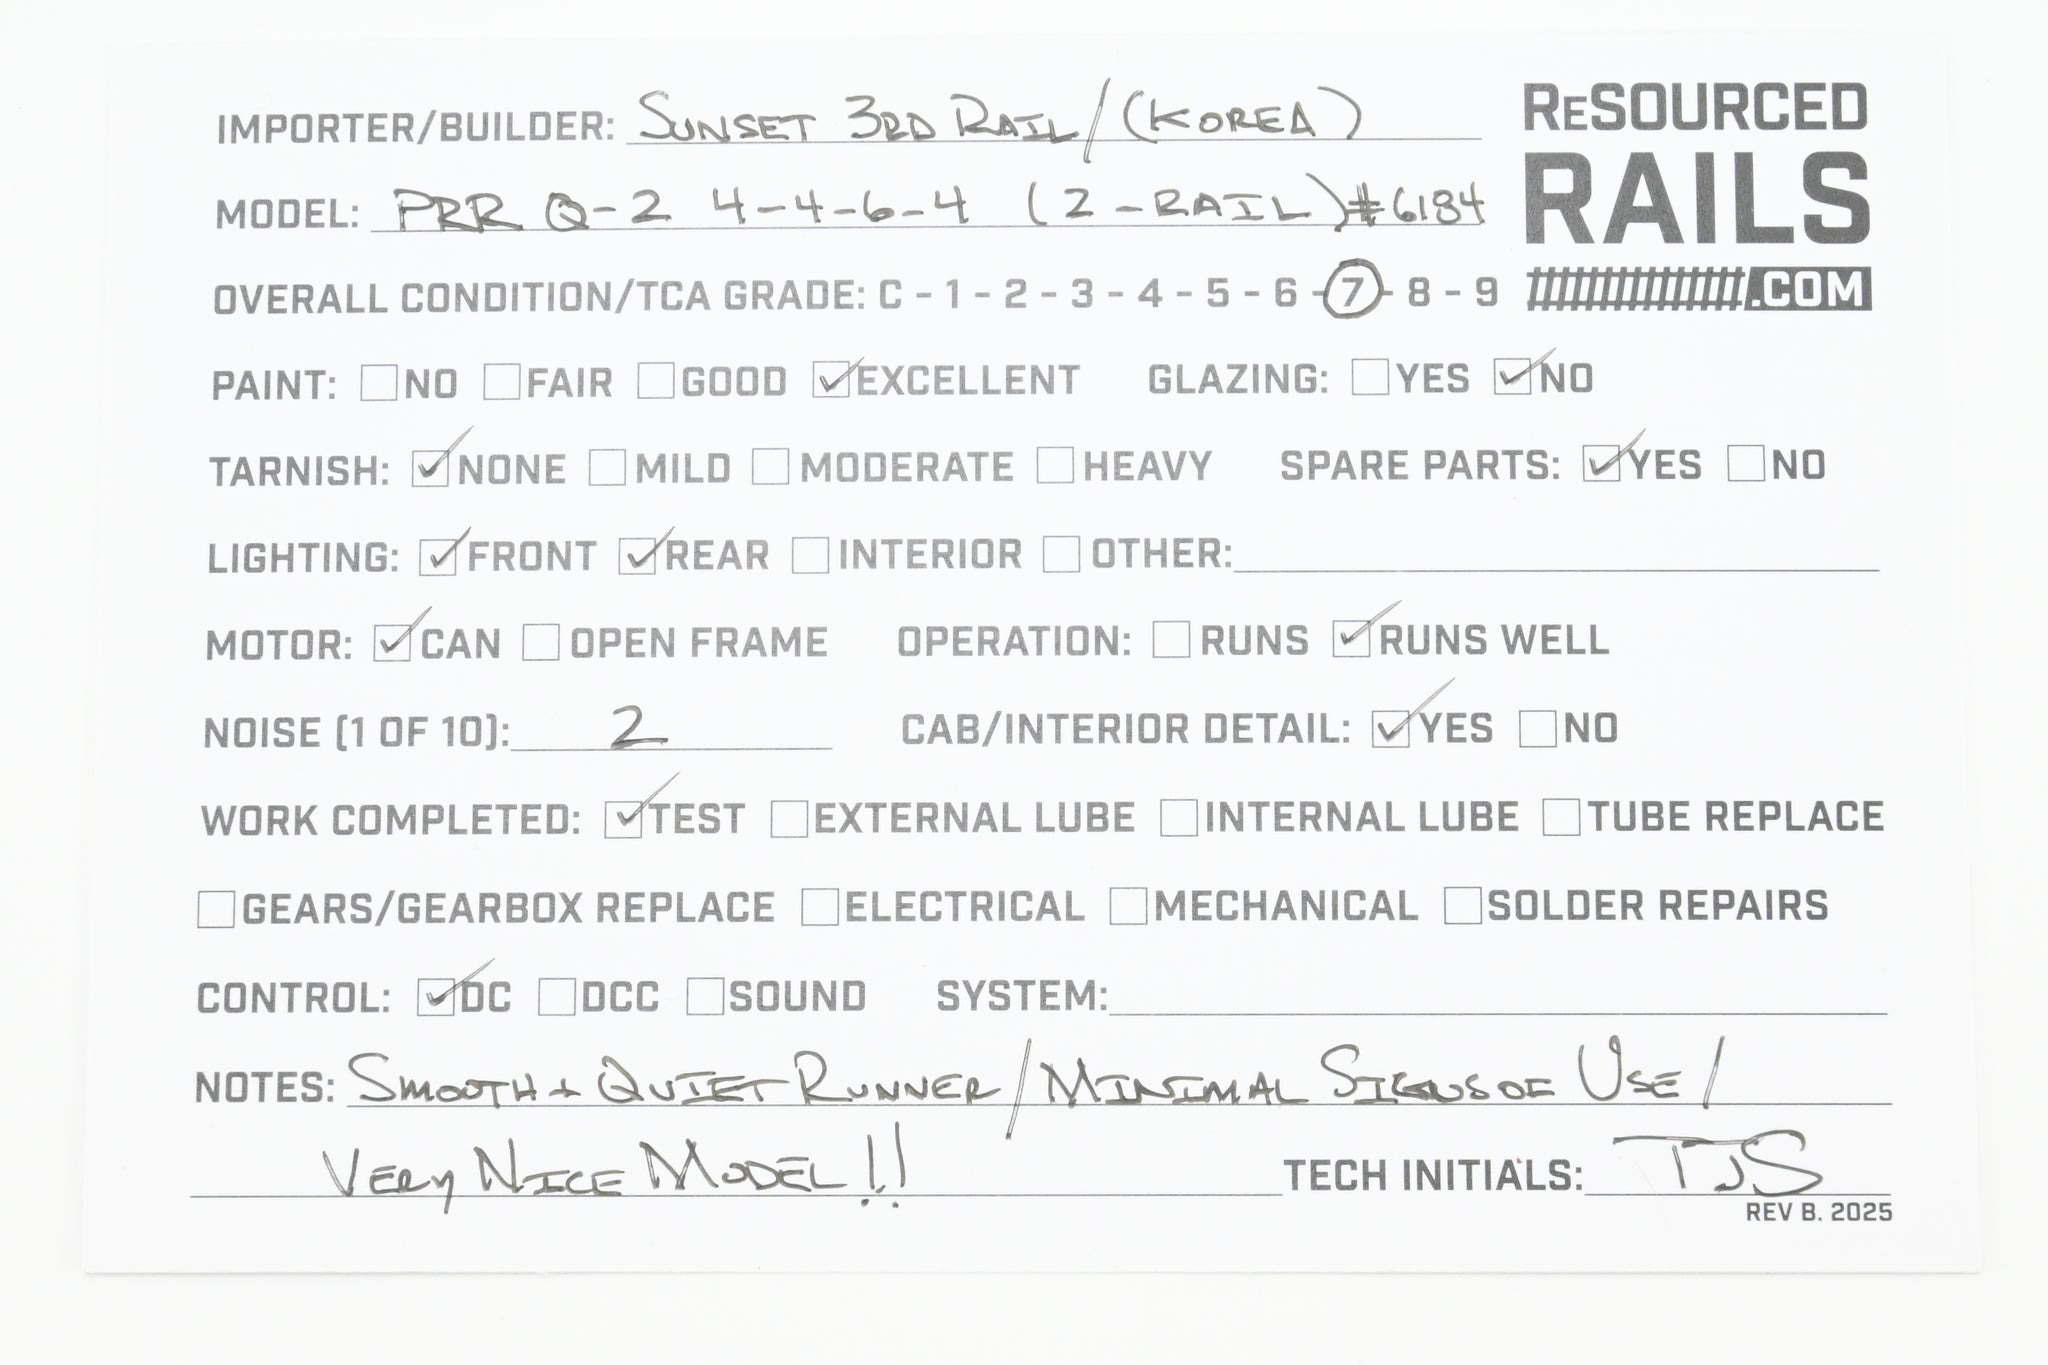 IMPORTER/BUILDER: SUNSET 3RD RAIL/(KOREA)
RESOURCED
RAILS
.COM
MODEL: PRR Q-2 4-4-6-4 (2-RAIL)#6184
OVERALL CONDITION/TCA GRADE: C - 1 - 2 - 3 - 4 - 5 - 6 - 7 - 8 - 9
PAINT: NO FAIR GOOD ✓EXCELLENT GLAZING: YES ✓NO
TARNISH: ✓NONE MILD MODERATE HEAVY SPARE PARTS: ✓YES NO
LIGHTING: ✓FRONT ✓REAR INTERIOR OTHER:
MOTOR: ✓CAN OPEN FRAME OPERATION: RUNS ✓RUNS WELL
NOISE (1 OF 10): 2 CAB/INTERIOR DETAIL: ✓YES NO
WORK COMPLETED: ✓TEST EXTERNAL LUBE INTERNAL LUBE TUBE REPLACE
GEARS/GEARBOX REPLACE ELECTRICAL MECHANICAL SOLDER REPAIRS
CONTROL: ✓DC DCC SOUND SYSTEM:
NOTES: SMOOTH + QUIET RUNNER/MINIMAL SIGNS OF USE/
VERY NICE MODEL!! TECH INITIALS: TJS
REV B. 2025